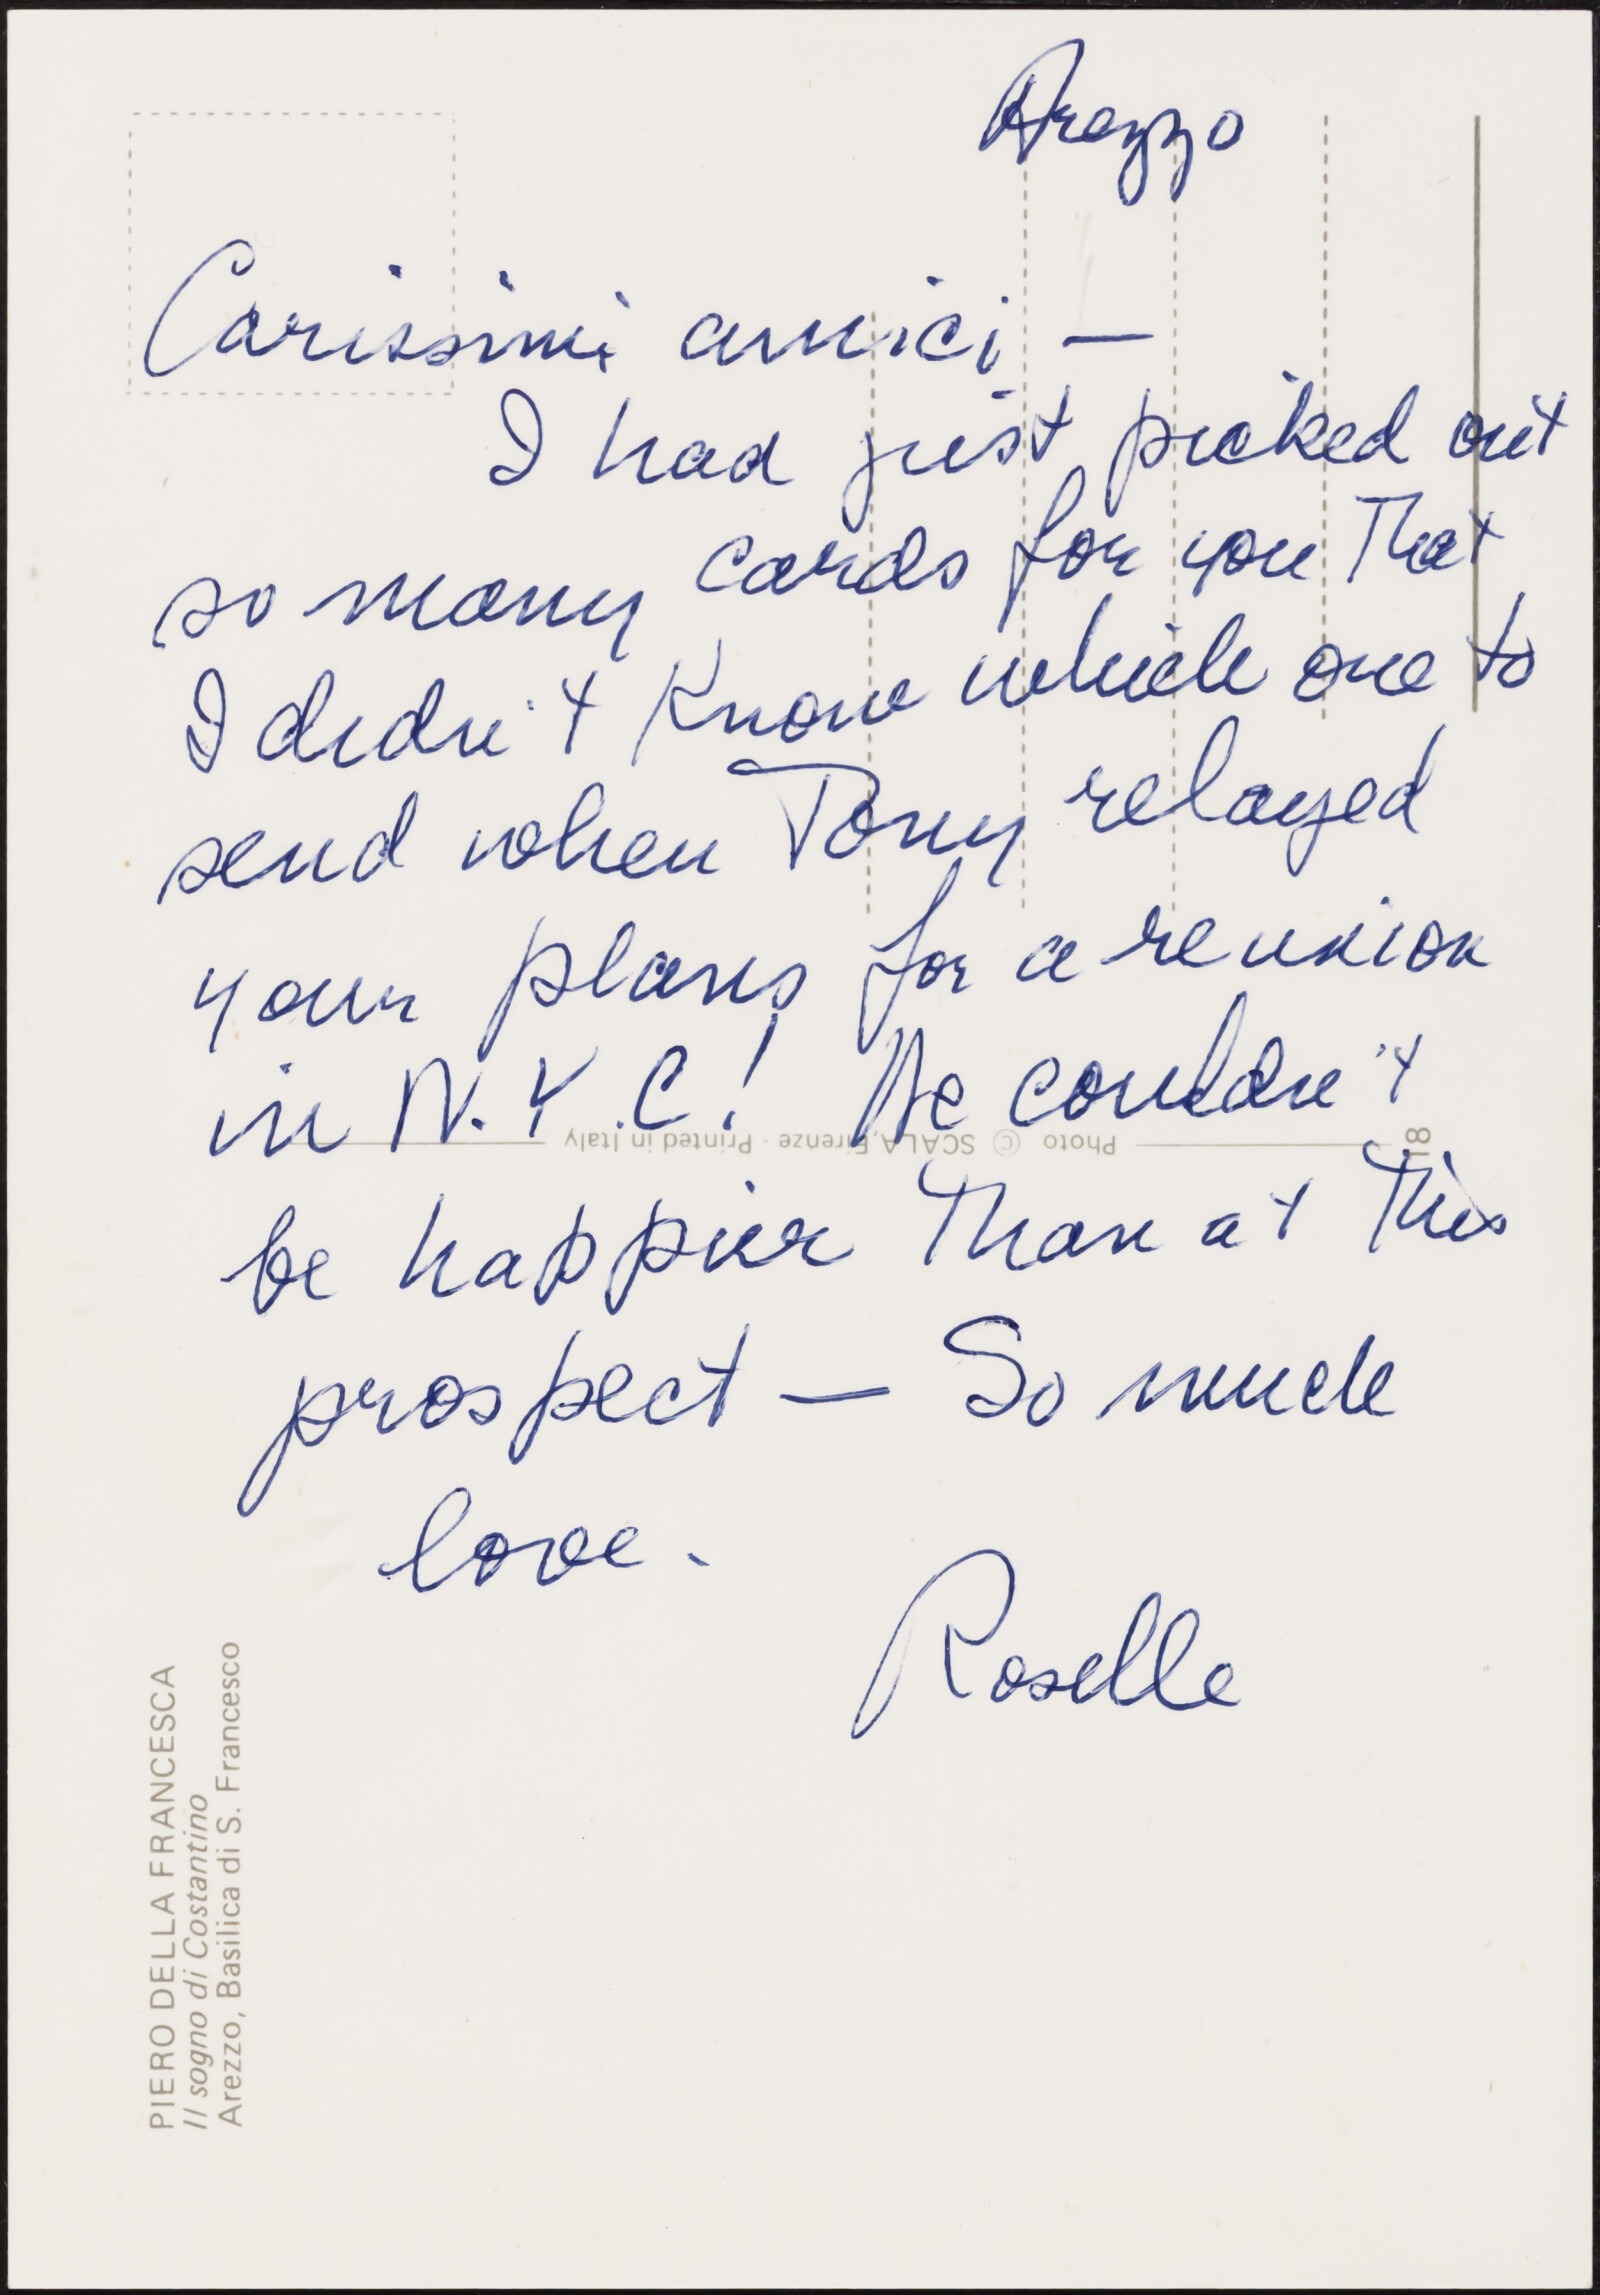 Arezzo
Carissimi amici —
I had just picked out
so many cards for you that
I didn't know which one to
send when Tony relayed
your plans for a reunion
in N.Y.C.! We couldn't
be happier than at this
prospect — So much
love.
Roselle
Photo © SCALA, Firenze - Printed in Italy
18
PIERO DELLA FRANCESCA
Il sogno di Costantino
Arezzo, Basilica di S. Francesco